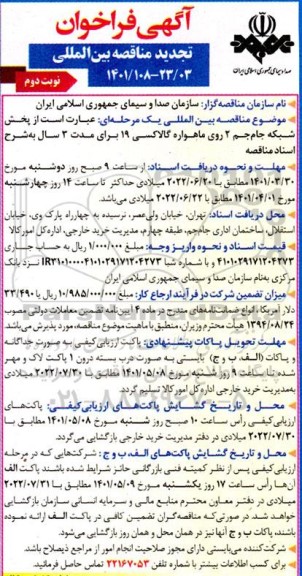 آگهی فراخوان
تجدید مناقصه بین‌المللی
۱۴۰۱/۱۰۸-۲۳/۰۳
نوبت دوم
صدا و سیمای جمهوری اسلامی ایران
نام سازمان مناقصه‌گزار: سازمان صدا و سیمای جمهوری اسلامی ایران
موضوع مناقصه بین المللی یک مرحله‌ای: عبارت است از پخش
شبکه جام‌جم ۲ روی ماهواره گالاکسی ۱۹ برای مدت ۳ سال به‌شرح
اسناد مناقصه
مهلت و نحوه دریافت اسناد: از ساعت ۹ صبح روز دوشنبه مورخ
۱۴۰۱/۰۳/۳۰ مطابق با ۲۰۲۲/۰۶/۲۰ میلادی حداکثر تا ساعت ۱۴ روز چهارشنبه
مورخ ۱۴۰۱/۰۴/۰۱ مطابق با ۲۰۲۲/۰۶/۲۲ میلادی می‌باشد.
محل دریافت اسناد: تهران، خیابان ولی‌عصر، نرسیده به چهارراه پارک وی، خیابان
استقلال، ساختمان اداری جام‌جم، طبقه چهارم، مدیریت خرید خارجی، اداره کل امور کالا
قیمت اسناد و نحوه واریز وجه: مبلغ ۱/۰۰۰/۰۰۰ ریال به حساب جاری
۴۱۰۱۰۲۹۱۷۱۲۰۴۲۷۳ و با شماره شبا نزد بانک
مرکزی به‌نام سازمان صدا و سیمای جمهوری اسلامی ایران
میزان تضمین شرکت در فرآیند ارجاع کار: مبلغ ۱۰/۹۸۵/۰۰۰/۰۰۰ ریال یا ۳۳/۴۹۰
دلار آمریکا، انواع ضمانت‌نامه‌های مندرج در ماده ۴ آیین‌نامه تضمین معاملات دولتی مصوب
۱۳۹۴/۰۸/۲۴ هیأت محترم وزیران، منطبق با ماهیت موضوع مناقصه، مورد پذیرش می‌باشد
مهلت تحویل پاکات پیشنهادی: پاکت ارزیابی کیفی به صورت جداگانه
و پاکات (الف، ب و ج) بایستی به صورت درب بسته درون ۱ پاکت لاک و مهر
شده تا ساعت ۹ روز شنبه مورخ ۱۴۰۱/۰۵/۰۸ مطابق با ۲۰۲۲/۰۷/۳۰ میلادی
به‌مدیریت خرید خارجی اداره کل امور کالا تسلیم گردد.
محل و تاریخ گشایش پاکت‌های ارزیابی‌کیفی: پاکت‌های
ارزیابی‌کیفی رأس ساعت ۱۰ صبح روز شنبه مورخ ۱۴۰۱/۰۵/۰۸ مطابق با
۲۰۲۲/۰۷/۳۰ میلادی در دفتر مدیریت خرید خارجی بازگشایی می‌گردد.
محل و تاریخ گشایش پاکت‌های الف، ب و ج: شرکت‌هایی که در مرحله
ارزیابی‌کیفی پس از نظر کمیته فنی بازرگانی حائز شرایط شده باشند پاکت الف
آن‌ها رأس ساعت ۱۷ روز یکشنبه مورخ ۱۴۰۱/۰۵/۰۹ مطابق با ۲۰۲۲/۰۷/۳۱
میلادی در دفتر معاون محترم منابع مالی و سرمایه انسانی سازمان بازگشایی
خواهد شد. در صورتی‌که مناقصه‌گران تضمین کافی در پاکت الف ارائه نموده
باشند، پاکات ب و ج آنها نیز در همان محل و همان روز بازگشایی می‌شود.
شرکت‌کننده می‌بایستی دارای مجوز صلاحیت انجام امور از مراجع ذیصلاح باشد.
برای کسب اطلاعات بیشتر با شماره تلفن ۲۲۱۶۷۰۵۳ تماس حاصل فرمائید.